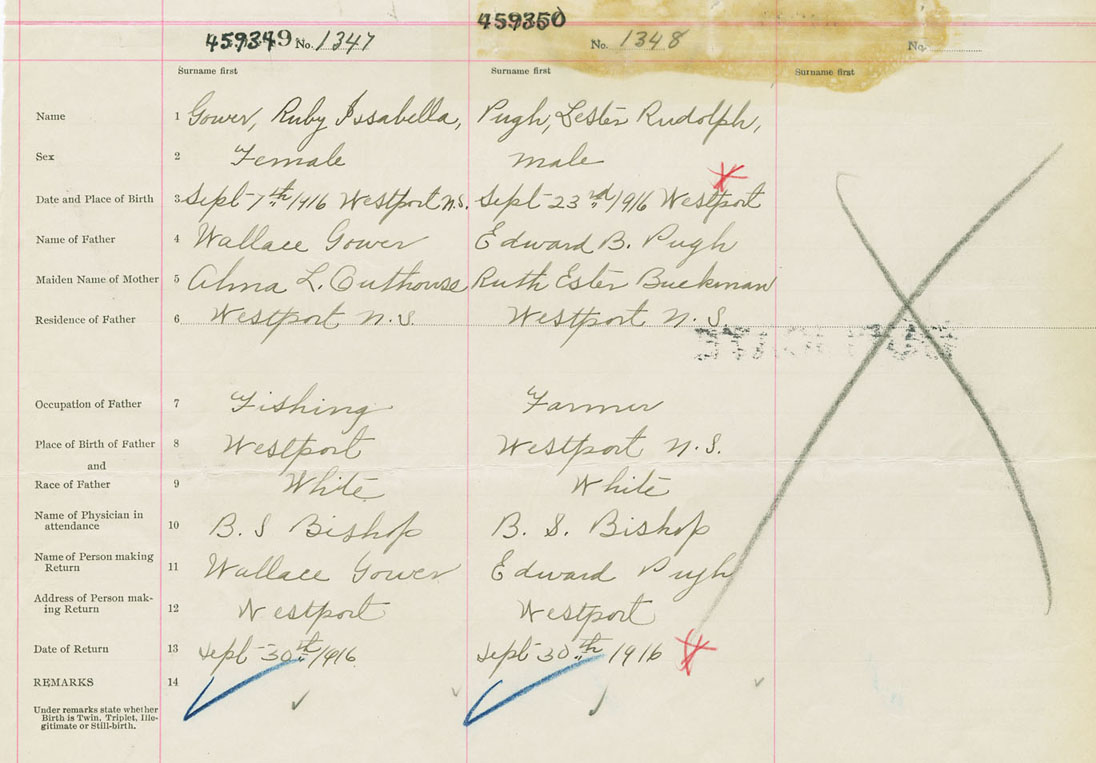 459349 No. 1347
459350
No. 1348
No.
Surname first Surname first Surname first
Name 1 Gower, Ruby Issabella, Pugh, Lester Rudolph,
Sex 2 Female male
Date and Place of Birth 3 Sept 7th 1916 Westport N.S. Sept 23rd 1916 Westport
Name of Father 4 Wallace Gower Edward B. Pugh
Maiden Name of Mother 5 Alma L. Outhouse Ruth Ester Buckman
Residence of Father 6 Westport N.S. Westport N.S.
Occupation of Father 7 Fishing Farmer
Place of Birth of Father 8 Westport Westport N.S.
and
Race of Father 9 White White
Name of Physician in
attendance 10 B. S Bishop B. S. Bishop
Name of Person making
Return 11 Wallace Gower Edward Pugh
Address of Person mak-
ing Return 12 Westport Westport
Date of Return 13 Sept 30th 1916 Sept 30th 1916
REMARKS 14
Under remarks state whether
Birth is Twin, Triplet, Ille-
gitimate or Still-birth.